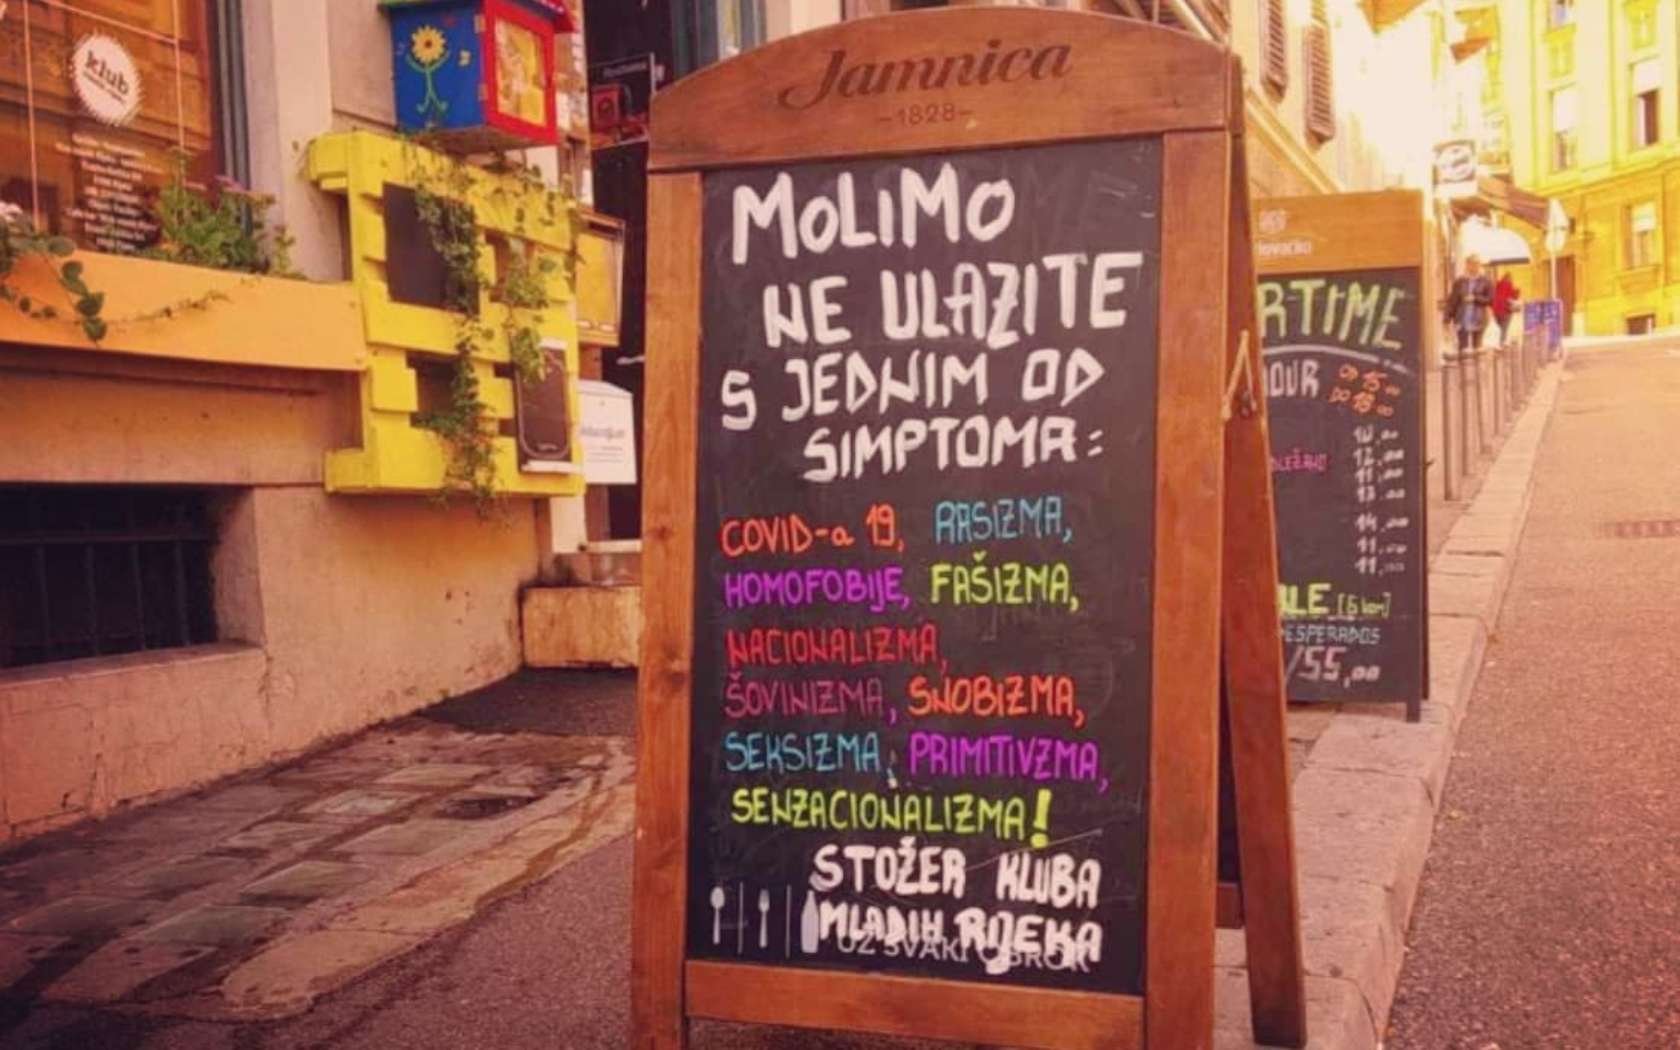 klub
Jamnica
-1828-
MOLIMO
NE ULAZITE
S JEDNIM OD
SIMPTOMA:
COVID-a 19, RASIZMA,
HOMOFOBIJE, FAŠIZMA,
NACIONALIZMA,
ŠOVINIZMA, SNOBIZMA,
SEKSIZMA, PRIMITIVZMA,
SENZACIONALIZMA!
STOŽER KLUBA
MLADIH RIJEKA
UZ SVAKI OBROK
RTIME
OUR OD 15 00
DO 18 00
10,00
12,00
11,00
13,00
14,00
11,00
11,00
ALE [6 kom]
DESPERADOS
/55,00